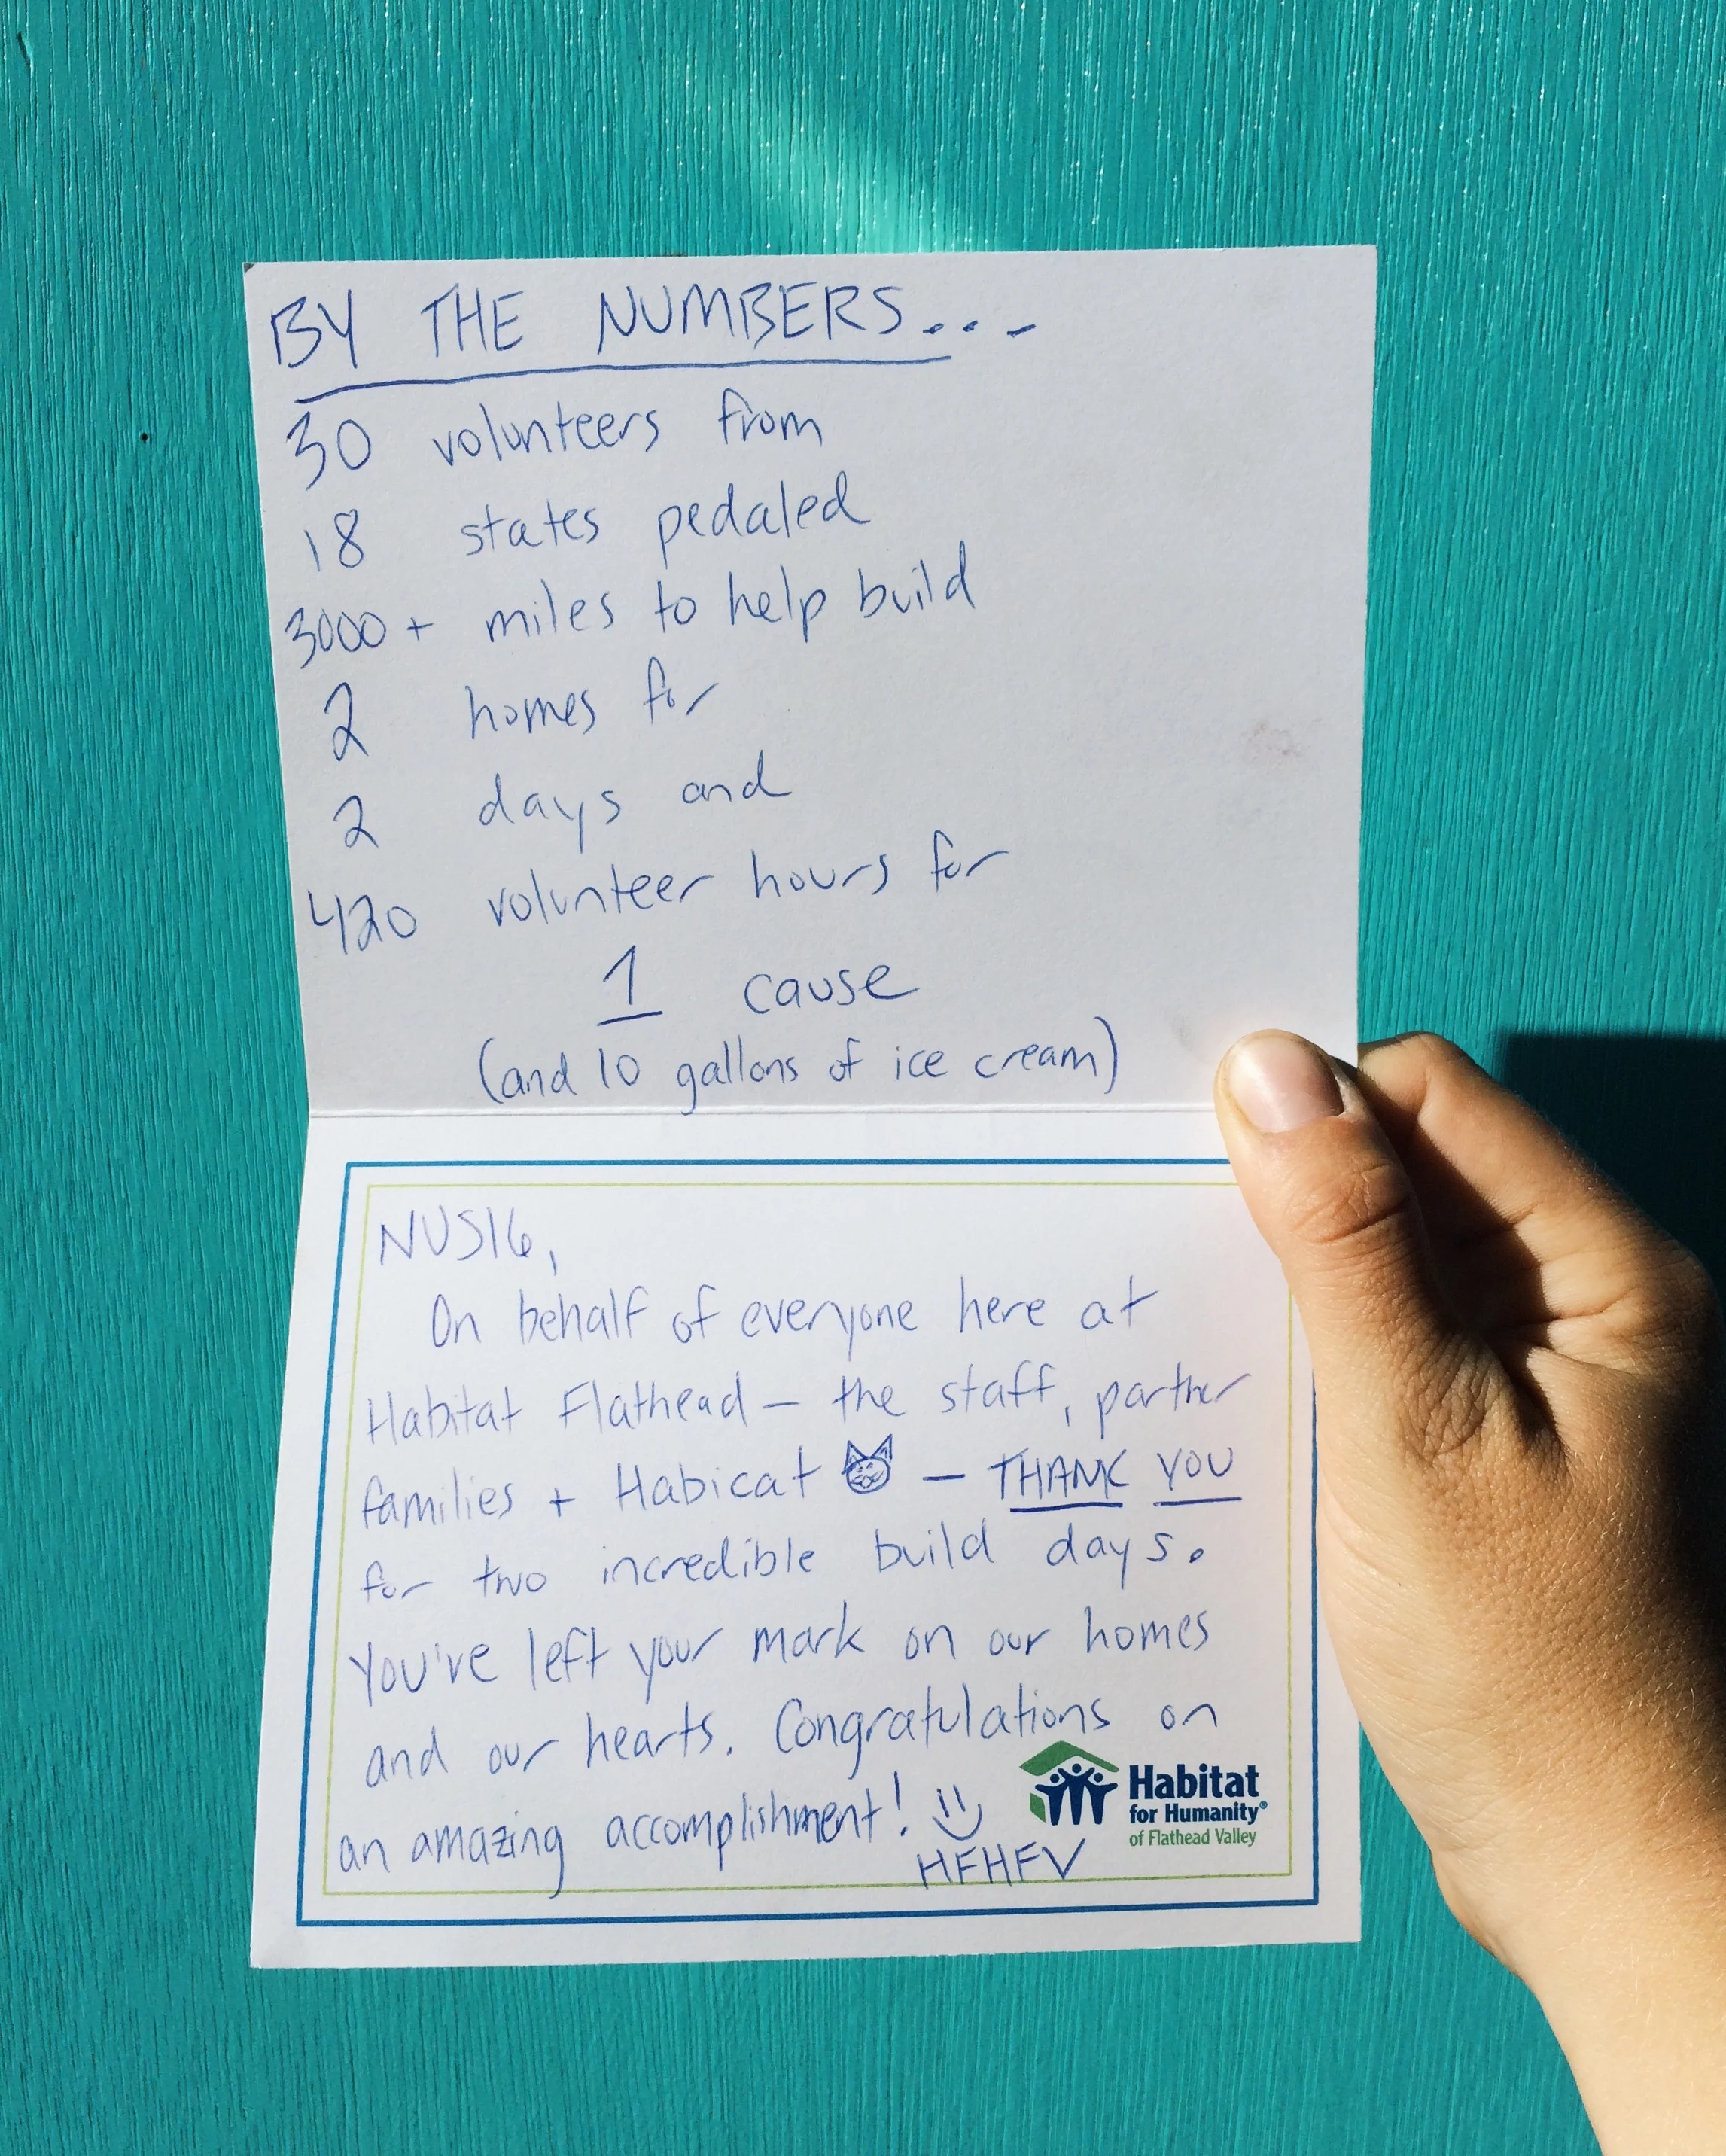 BY THE NUMBERS...
30 volunteers from
18 states pedaled
3000+ miles to help build
2 homes for
2 days and
420 volunteer hours for
1 cause
(and 10 gallons of ice cream)
NUS16,
On behalf of everyone here at
Habitat Flathead – the staff, partner
families + Habicat – THANK YOU
for two incredible build days.
You've left your mark on our homes
and our hearts. Congratulations on
an amazing accomplishment!
HFHFV
Habitat
for Humanity®
of Flathead Valley